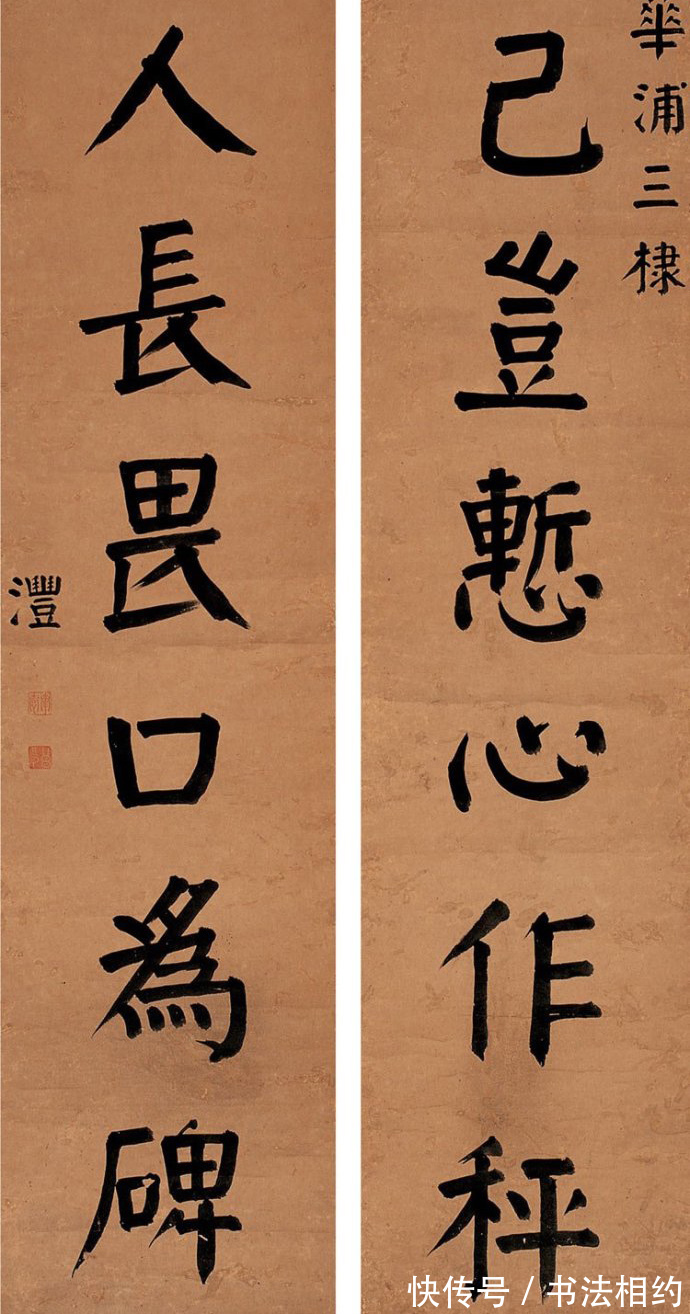 華浦三棣
己豈慙心作秤
人長畏口為碑
灃
快传号/书法相约